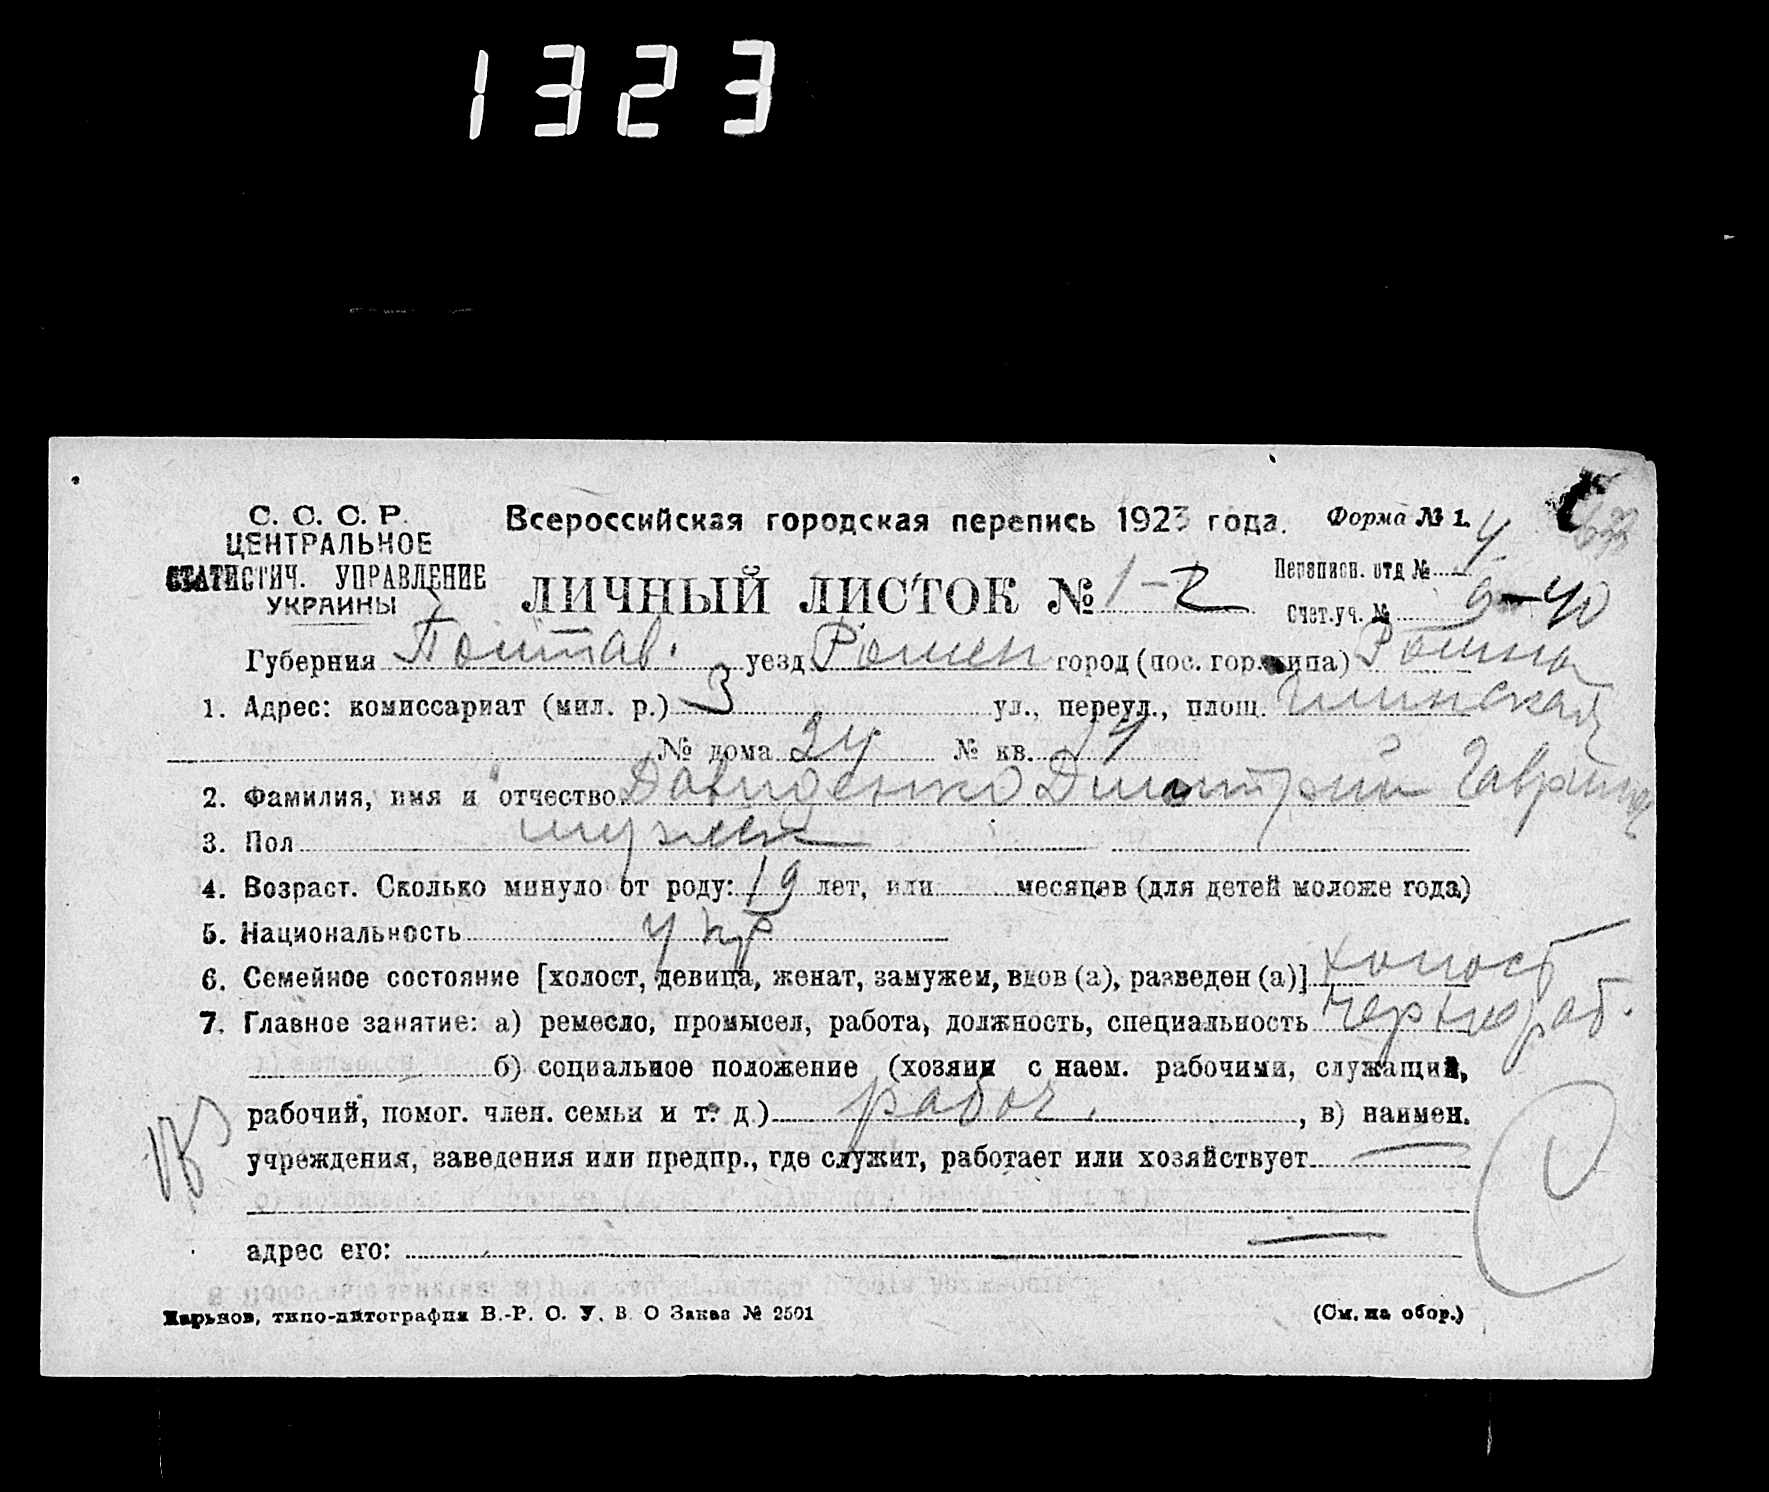 1323
С. С. С. Р.
ЦЕНТРАЛЬНОЕ
СТАТИСТИЧ. УПРАВЛЕНИЕ
УКРАИНЫ
Всероссийская городская перепись 1923 года.
Форма № 1.
ЛИЧНЫЙ ЛИСТОК № 1-2
Переписн. отд № 4
Счет.уч. № 9-40
Губерния Полтав. уезд Ромен город (пос. гор. типа) Ромны
1. Адрес: комиссариат (мил. р.) 3 ул., переул., площ. Глинская
№ дома 24 № кв.
2. Фамилия, имя и отчество Давиденко Димитрий Гаврилов
3. Пол мужск
4. Возраст. Сколько минуло от роду: 19 лет, или месяцев (для детей моложе года)
5. Национальность укр
6. Семейное состояние [холост, девица, женат, замужем, вдов (а), разведен (а)] холост
7. Главное занятие: а) ремесло, промысел, работа, должность, специальность чернораб.
б) социальное положение (хозяин с наем. рабочими, служащий,
рабочий, помог. член. семьи и т. д.) рабоч. , в) наимен.
учреждения, заведения или предпр., где служит, работает или хозяйствует
адрес его:
Харьков, типо-литография В.-Р. О. У. В О Заказ № 2501
(См. на обор.)